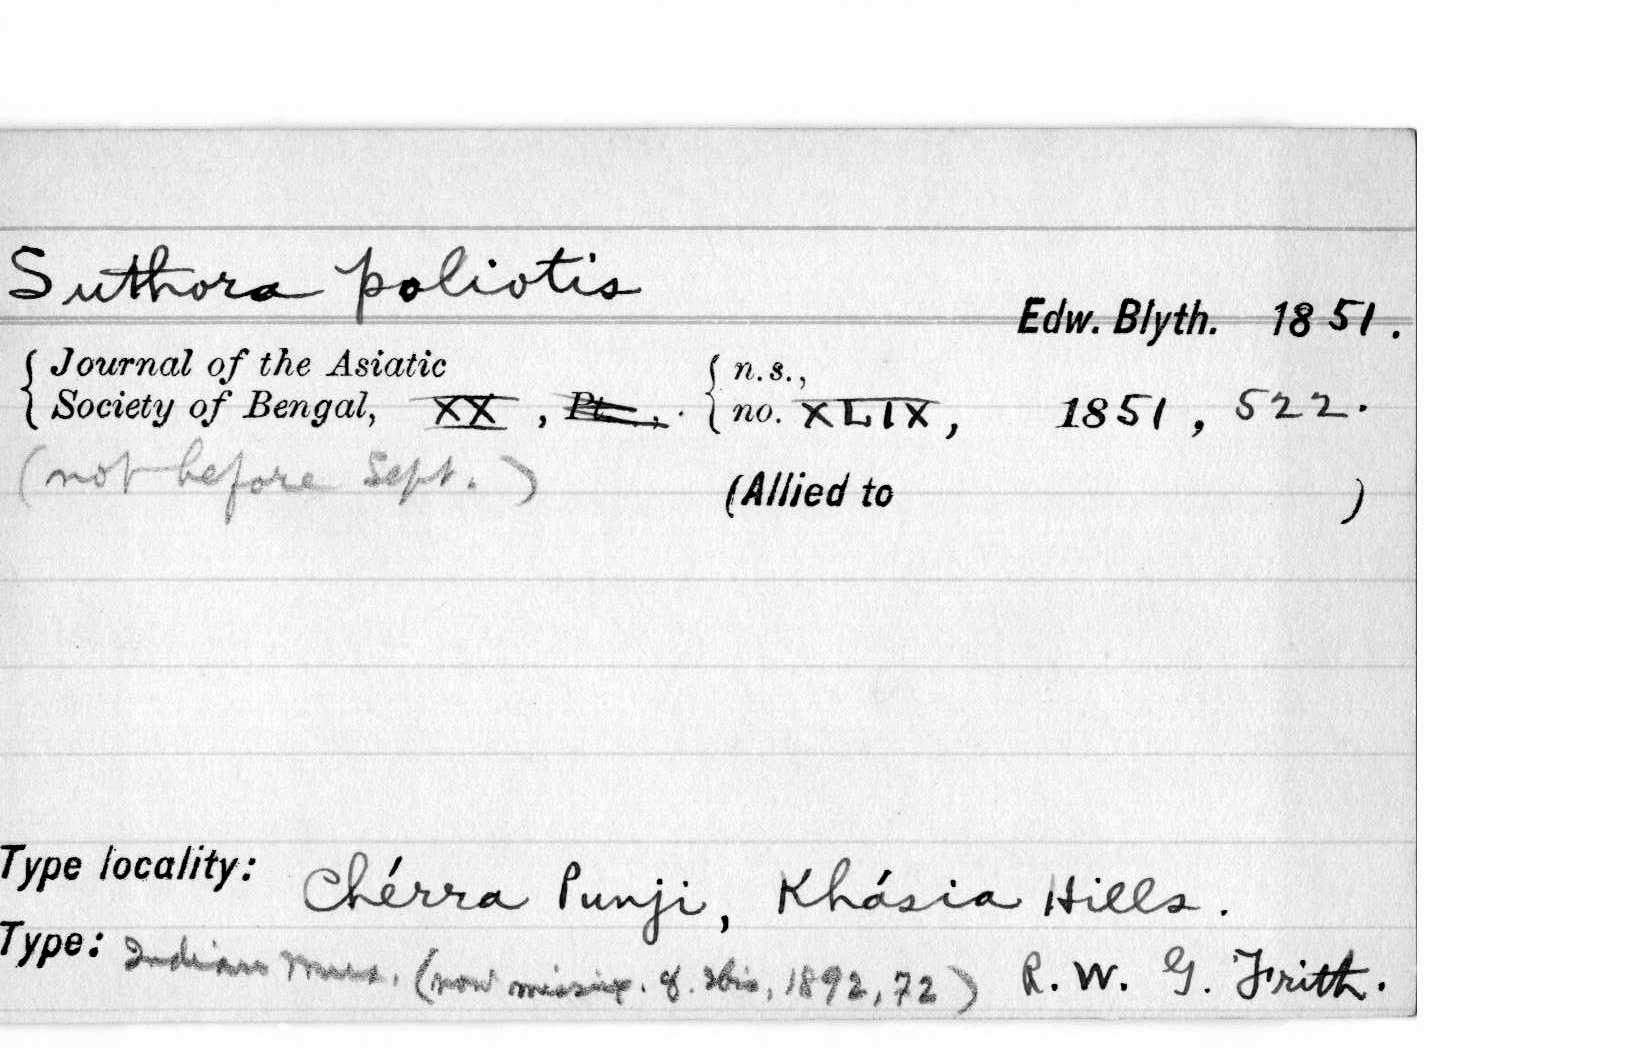 Suthora poliotis
Edw. Blyth. 1851.
Journal of the Asiatic n.s.,
Society of Bengal, XX, Pt. , . no. XLIX, 1851, 522.
(not before Sept.)
(Allied to )
Type locality: Chérra Punji, Khásia Hills.
Type: Indian Mus. (now missing. cf. Ibis, 1892, 72) R. W. G. Frith.